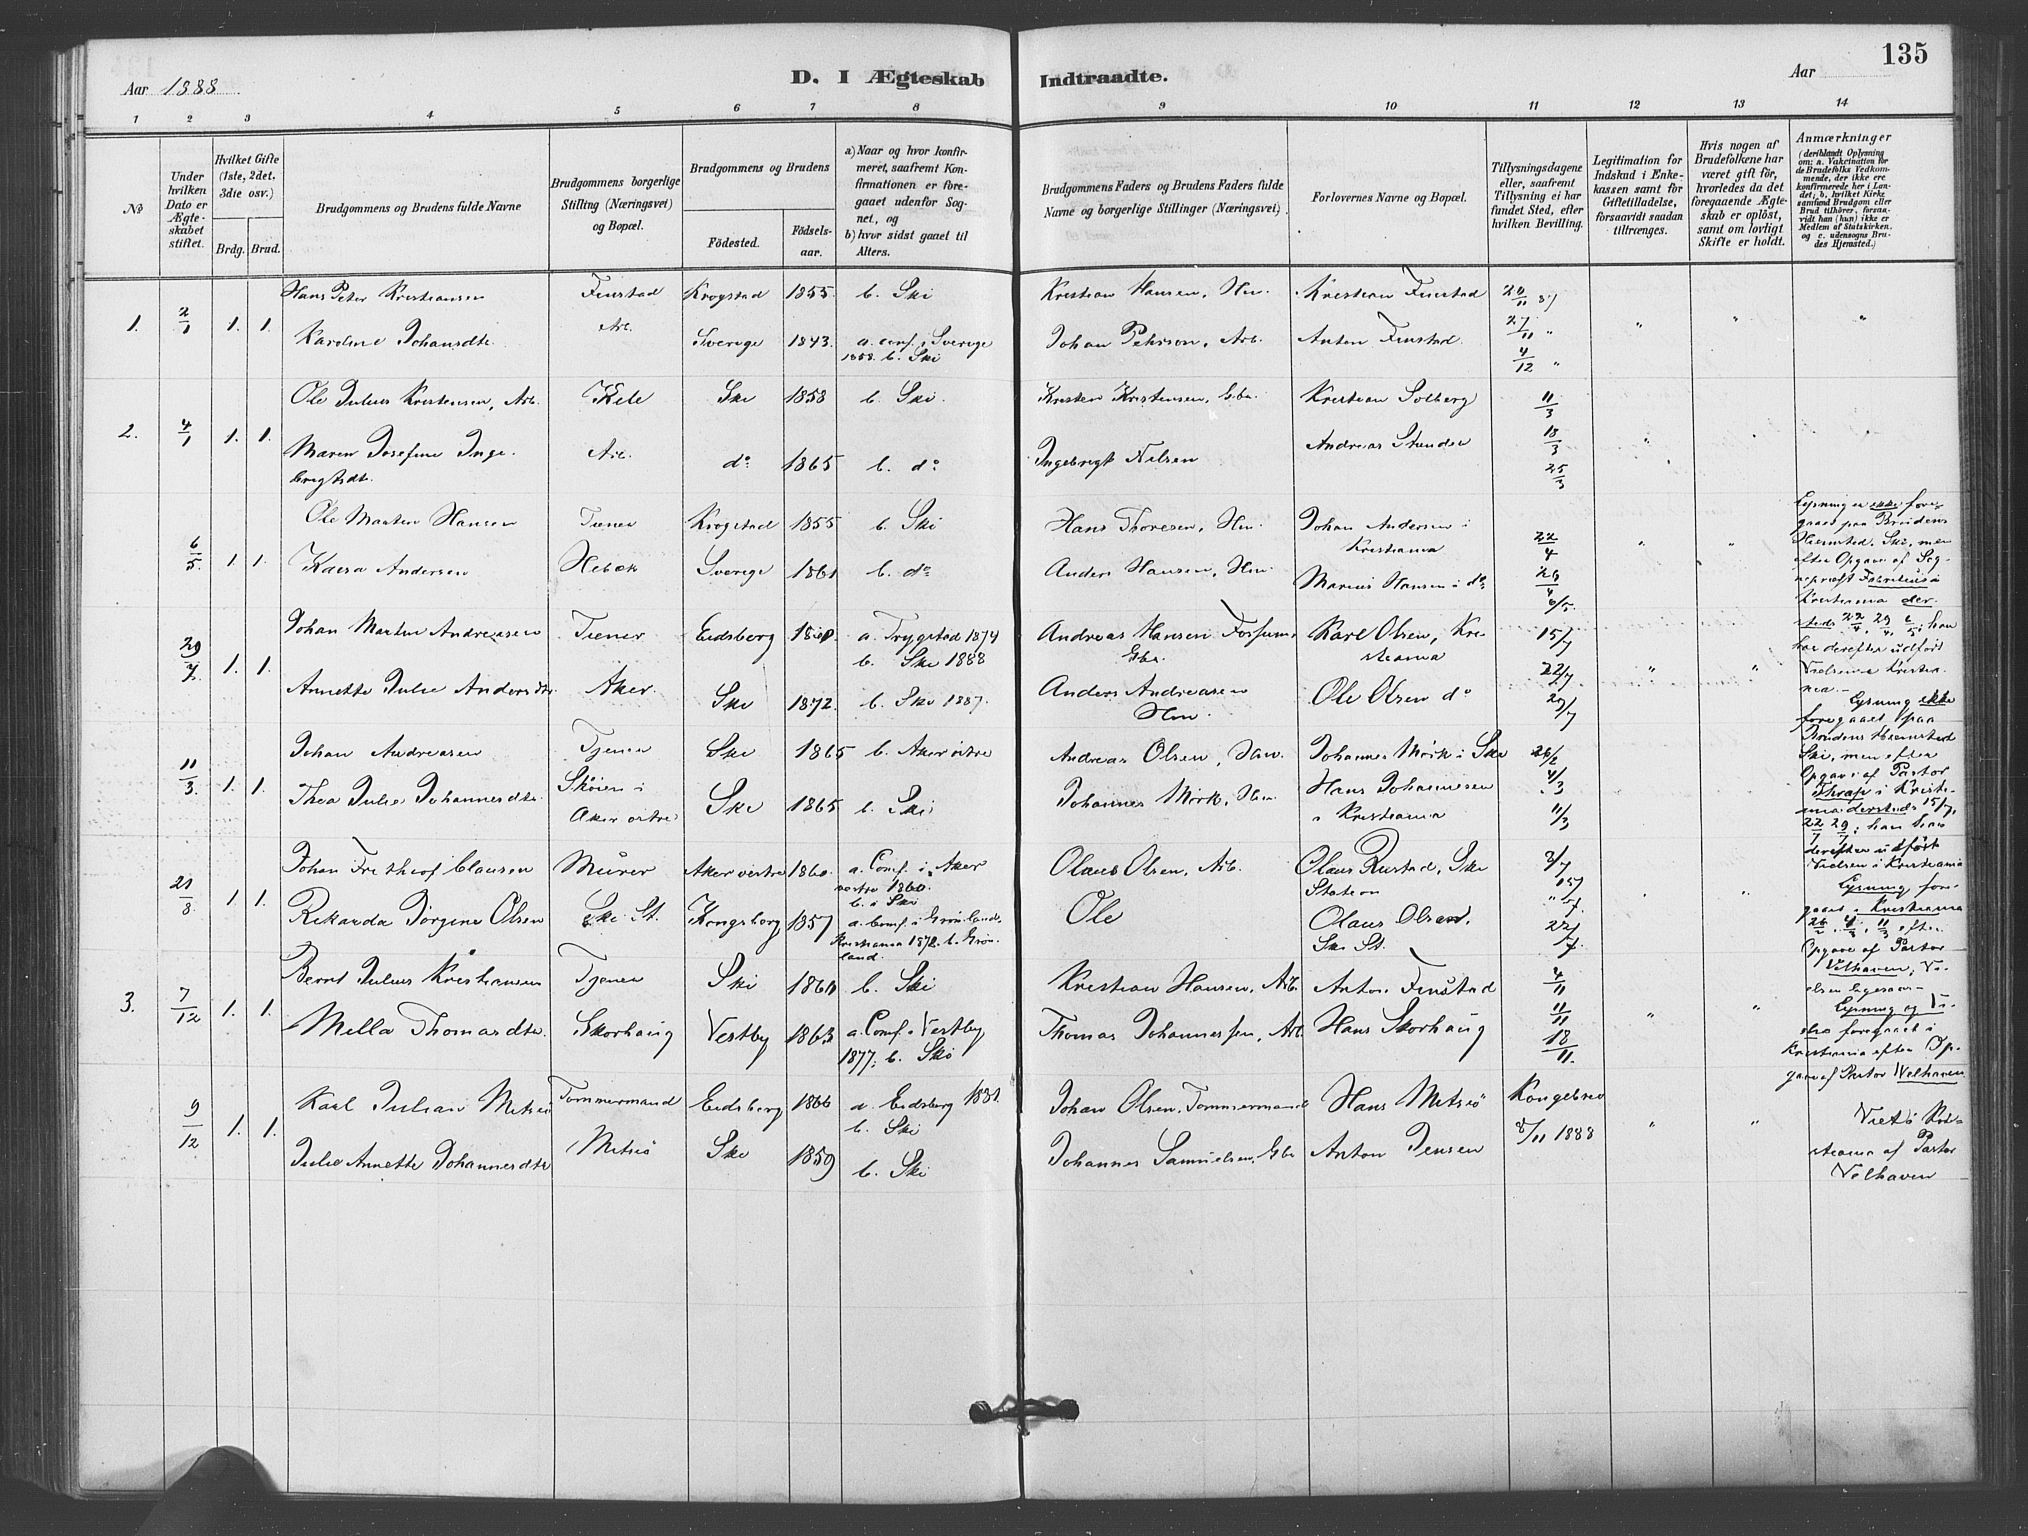 135
Aar 1888
D. I Ægteskab Indtraadte.
Aar
1 2 3 4 5 6 7 8 9 10 11 12 13 14
No
Under hvilken Dato er Ægteskabet stiftet.
Hvilket Gifte (1ste, 2det, 3die osv.)
Brdg. Brud.
Brudgommens og Brudens fulde Navne
Brudgommens borgerlige Stilling (Næringsvei) og Bopæl.
Brudgommens og Brudens
Födested. Födselsaar.
a) Naar og hvor konfirmeret, saafremt Konfirmationen er foregaaet udenfor Sognet, og
b) hvor sidst gaaet til Alters.
Brudgommens Faders og Brudens Faders fulde Navne og borgerlige Stillinger (Næringsvei).
Forlovernes Navne og Bopæl.
Tillysningsdagene eller, saafremt Tillysning ei har fundet Sted, efter hvilken Bevilling.
Legitimation for Indskud i Enkekassen samt for Giftetilladelse, forsaavidt saadan tiltrænges.
Hvis nogen af Brudefolkene har været gift för, hvorledes da det foregaaende Ægteskab er oplöst, samt om lovligt Skifte er holdt.
Anmærkninger
(deriblandt Oplysning om: a. Vakcination for de Brudefolks Vedkommende, der ikke ere konfirmerede her i Landet; b. hvilket Kirkesamfund Brudgom eller Brud tilhörer, forsaavidt han (hun) ikke er Medlem af Statskirken, og c. udensogns Brudes Hjemsted.)
1. 2/1 1. 1. Hans Peter Kristiansen Finstad Krogstad 1855. b. Ski Kristian Hansen, Hm. Kristian Finstad 20/11 87
Karoline Johansdtr. Arb. Sverige 1843. a. conf. i Sverige 1858. b. Ski Johan Pehrson, Arb. Anton Finstad. 27/11 " 4/12 " " " "
2. 4/1 1. 1. Ole Julius Kristensen, Arb. Ski 1858 b. Ski. Kristen Kristensen, Gbr. Kristian Solberg 11/3
Maren Josefine Ingebrigtsdtr. Arb. do 1865 b. do Ingebrigt Nilsen Andreas 18/3 25/3 "
6/5. 1. 1. Ole Martin Hansen Tiener Krogstad 1855 b. Ski Hans Thoresen, Hm. Johan Andersen i Kristiania 22/4
Kaisa Andersen Hebæk Sverige 1861 b. do Anders Hansen, Hm. Marius Hansen i do 29/4 6/5. " "
29/7. 1. 1. Johan Martin Andreasen Tiener Eidsberg a. Trygstad 1874 b. Ski 1888 Andreas Hansen Fossum, Gbr. Karl Olsen, Kristiania 15/7
Annette Julie Andersdtr. Aker. Ski 1872. b. Ski 1887. Anders Andreasen Hm. Ole Olsen do 22/7 29/7 " "
11/3. 1. 1. Johan Andreasen Tjener Ski 1865 b. Aker östre Andreas Olsen, Hm. Johannes Mörk i Ski 26/2
Thea Julie Johannesdtr. Sköien i Aker östre Ski 1865 b. Ski Johannes Mörk, Hm. Hans Johannesen i Kristiania 4/3 11/3
21/8 1. 1. Johan Frithiof Clausen Murer Aker vestre 1860. a. Conf. i Aker vestre 1860. b. i Ski Olaus Olsen, Arb. Olaus Rustad, Ski Station 8/7
Rikarda Jörgine Olsen Ski St. Kongsberg 1857 a. Conf. i Grönland Kristiania 1872. b. Grönland. Ole Olaus Olsen. Ski St. 15/7 22/7 " "
3. 7/12 1. 1. Bernt Julius Kristiansen Tjener Ski b. Ski Kristian Hansen, Arb. Anton Finstad 4/11
Mella Thomasdtr. Skorhaug Vestby 1863 a. Conf. i Vestby 1877; b. Ski Thomas Johannessen, Arb. Hans Skorhaug 11/11 18/11. " "
9/12 1. 1. Karl Julian Mitsiö Tømmermand Eidsberg 1866 a. Eidsberg 1881. b. Ski Johan Olsen, Tømmermand Hans Mitsiö Kongebrev
Julie Annette Johannesdtr. Mitsiö Ski 1859 b. Ski Johannes Samuelsen, Gbr. Anton Jensen 8/11 1888 " "
Lysning er ikke foregaaet paa Brudens Hjemsted, Ski, men efter Opgave af Sognepræst Fabritius i Kristiania dersteds 22/4, 29/4, 6/5; han har derefter udført Vielsen i Kristiania.
Lysning ikke foregaaet paa Brudens Hjemsted Ski, men efter Opgave af Pastor Thrap i Kristiania dersteds 15/7, 22/7 29/7; han har derefter udført Vielsen i Kristiania
Lysning foregaaet i Kristiania 26/2, 4/3, 11/3 efter Opgave af Pastor Velhaven; Vielsen ligesaa
Lysning og Vielse foregaaet i Kristiania efter Opgave af Pastor Welhaven
Viet i Kristiania af Pastor Velhaven